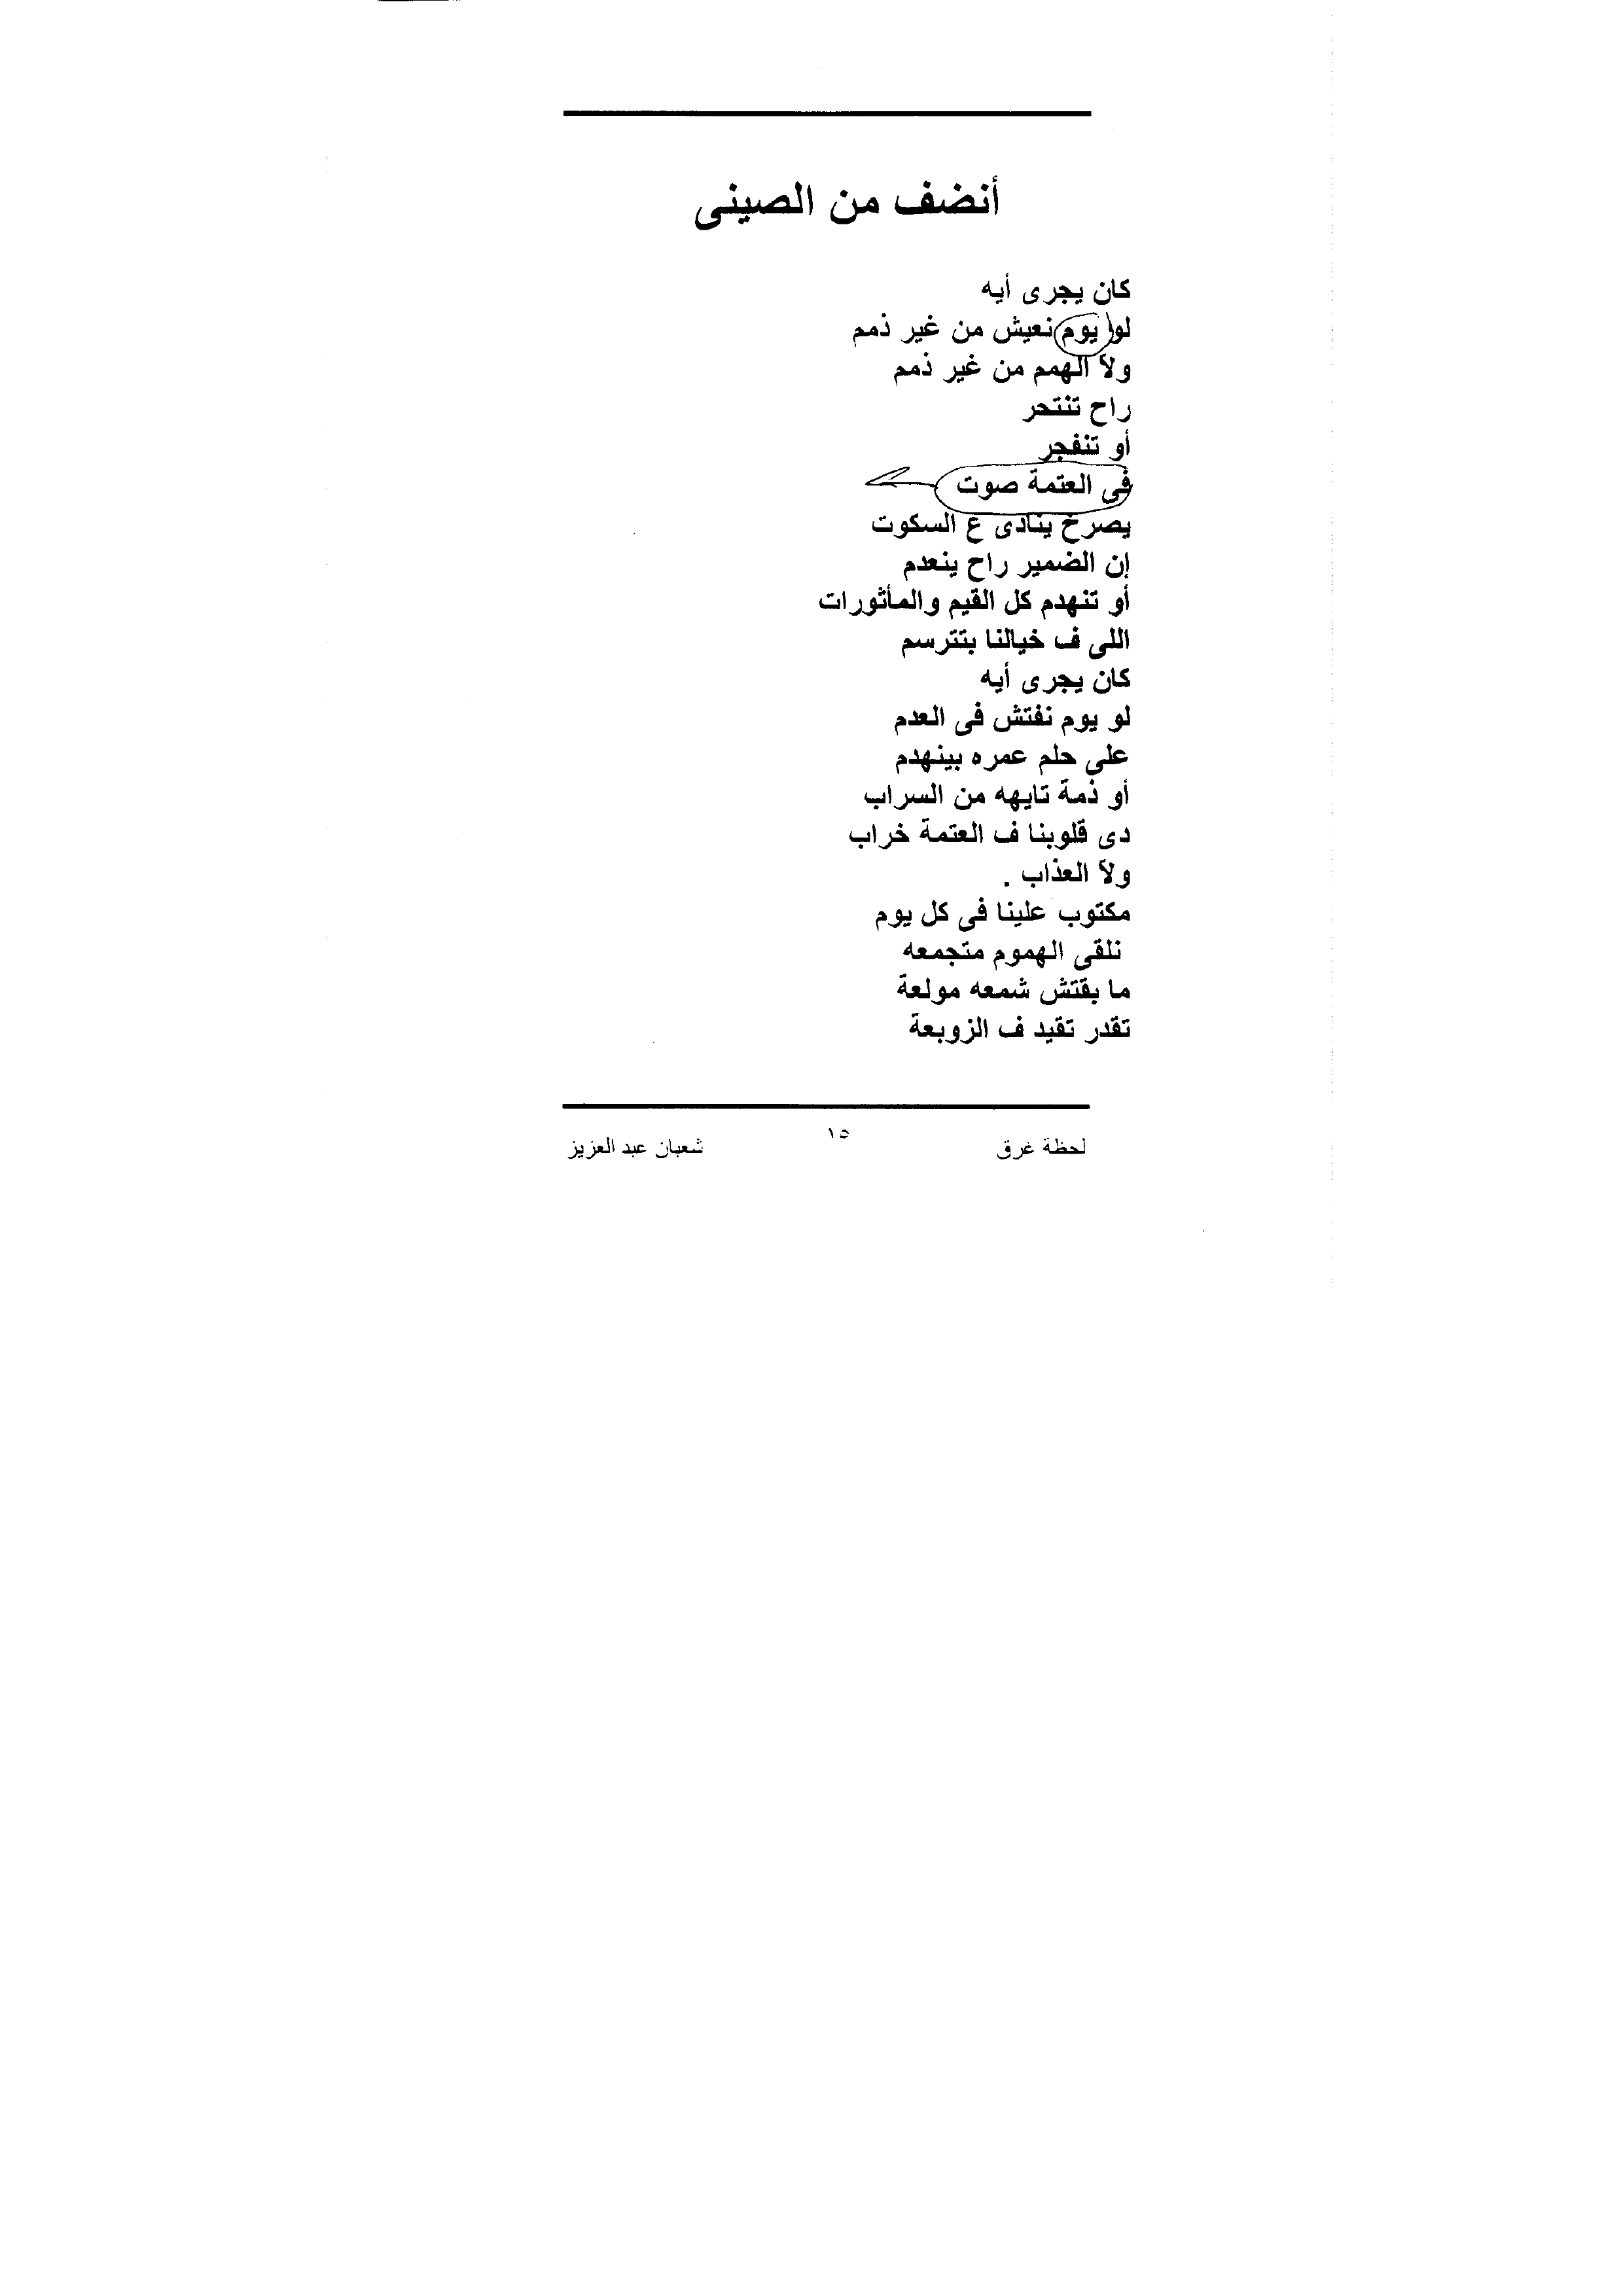 أنضف من الصينى
كان يجرى أيه
لو يوم نعيش من غير ذمم
ولآ الهمم من غير ذمم
راح تنتحر
أو تنفجر
فى العتمة صوت
يصرخ ينادى ع السكوت
إن الضمير راح ينعدم
أو تنهدم كل القيم والمأثورات
اللى ف خيالنا بتترسم
كان يجرى أيه
لو يوم نفتش فى العدم
على حلم عمره بينهدم
أو ذمة تايهه من السراب
دى قلوبنا ف العتمة خراب
ولآ العذاب .
مكتوب علينا فى كل يوم
نلقى الهموم متجمعه
ما بقتش شمعه مولعة
تقدر تقيد ف الزوبعة
لحظة غرق ١٥ شعبان عبد العزيز